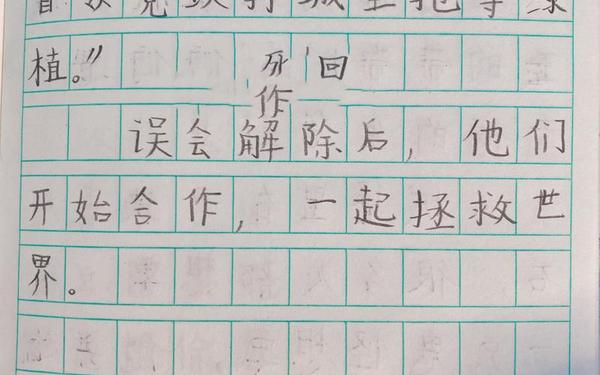 植。” 回
作
误会解除后，他们
开始合作，一起拯救世
界。